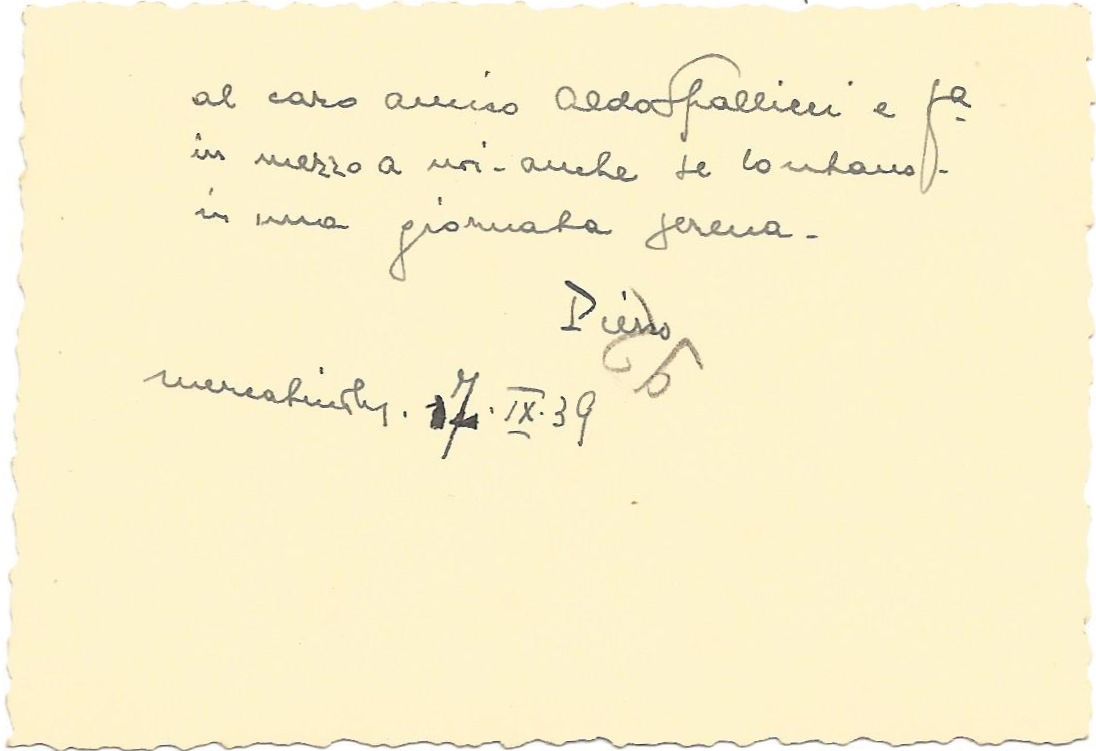 al caro amico Aldo Spallicci e fª
in mezzo a noi - anche se lontano -
in una giornata serena -
Piero
17. IX. 39